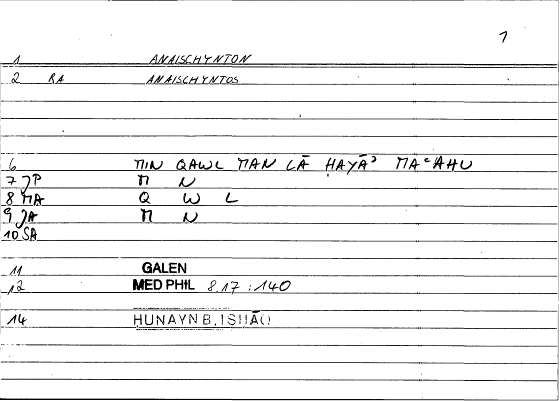 1
1 ANAISCHYNTON
2 RA ANAISCHYNTOS
6 MIN QAWL MAN LĀ HAYĀʾ MAʿAHU
7 JP M N
8 MA Q W L
9 JA M N
10 SA
11 GALEN
12 MED PHIL 8.17 : 140
14 HUNAYN B. ISHĀQ